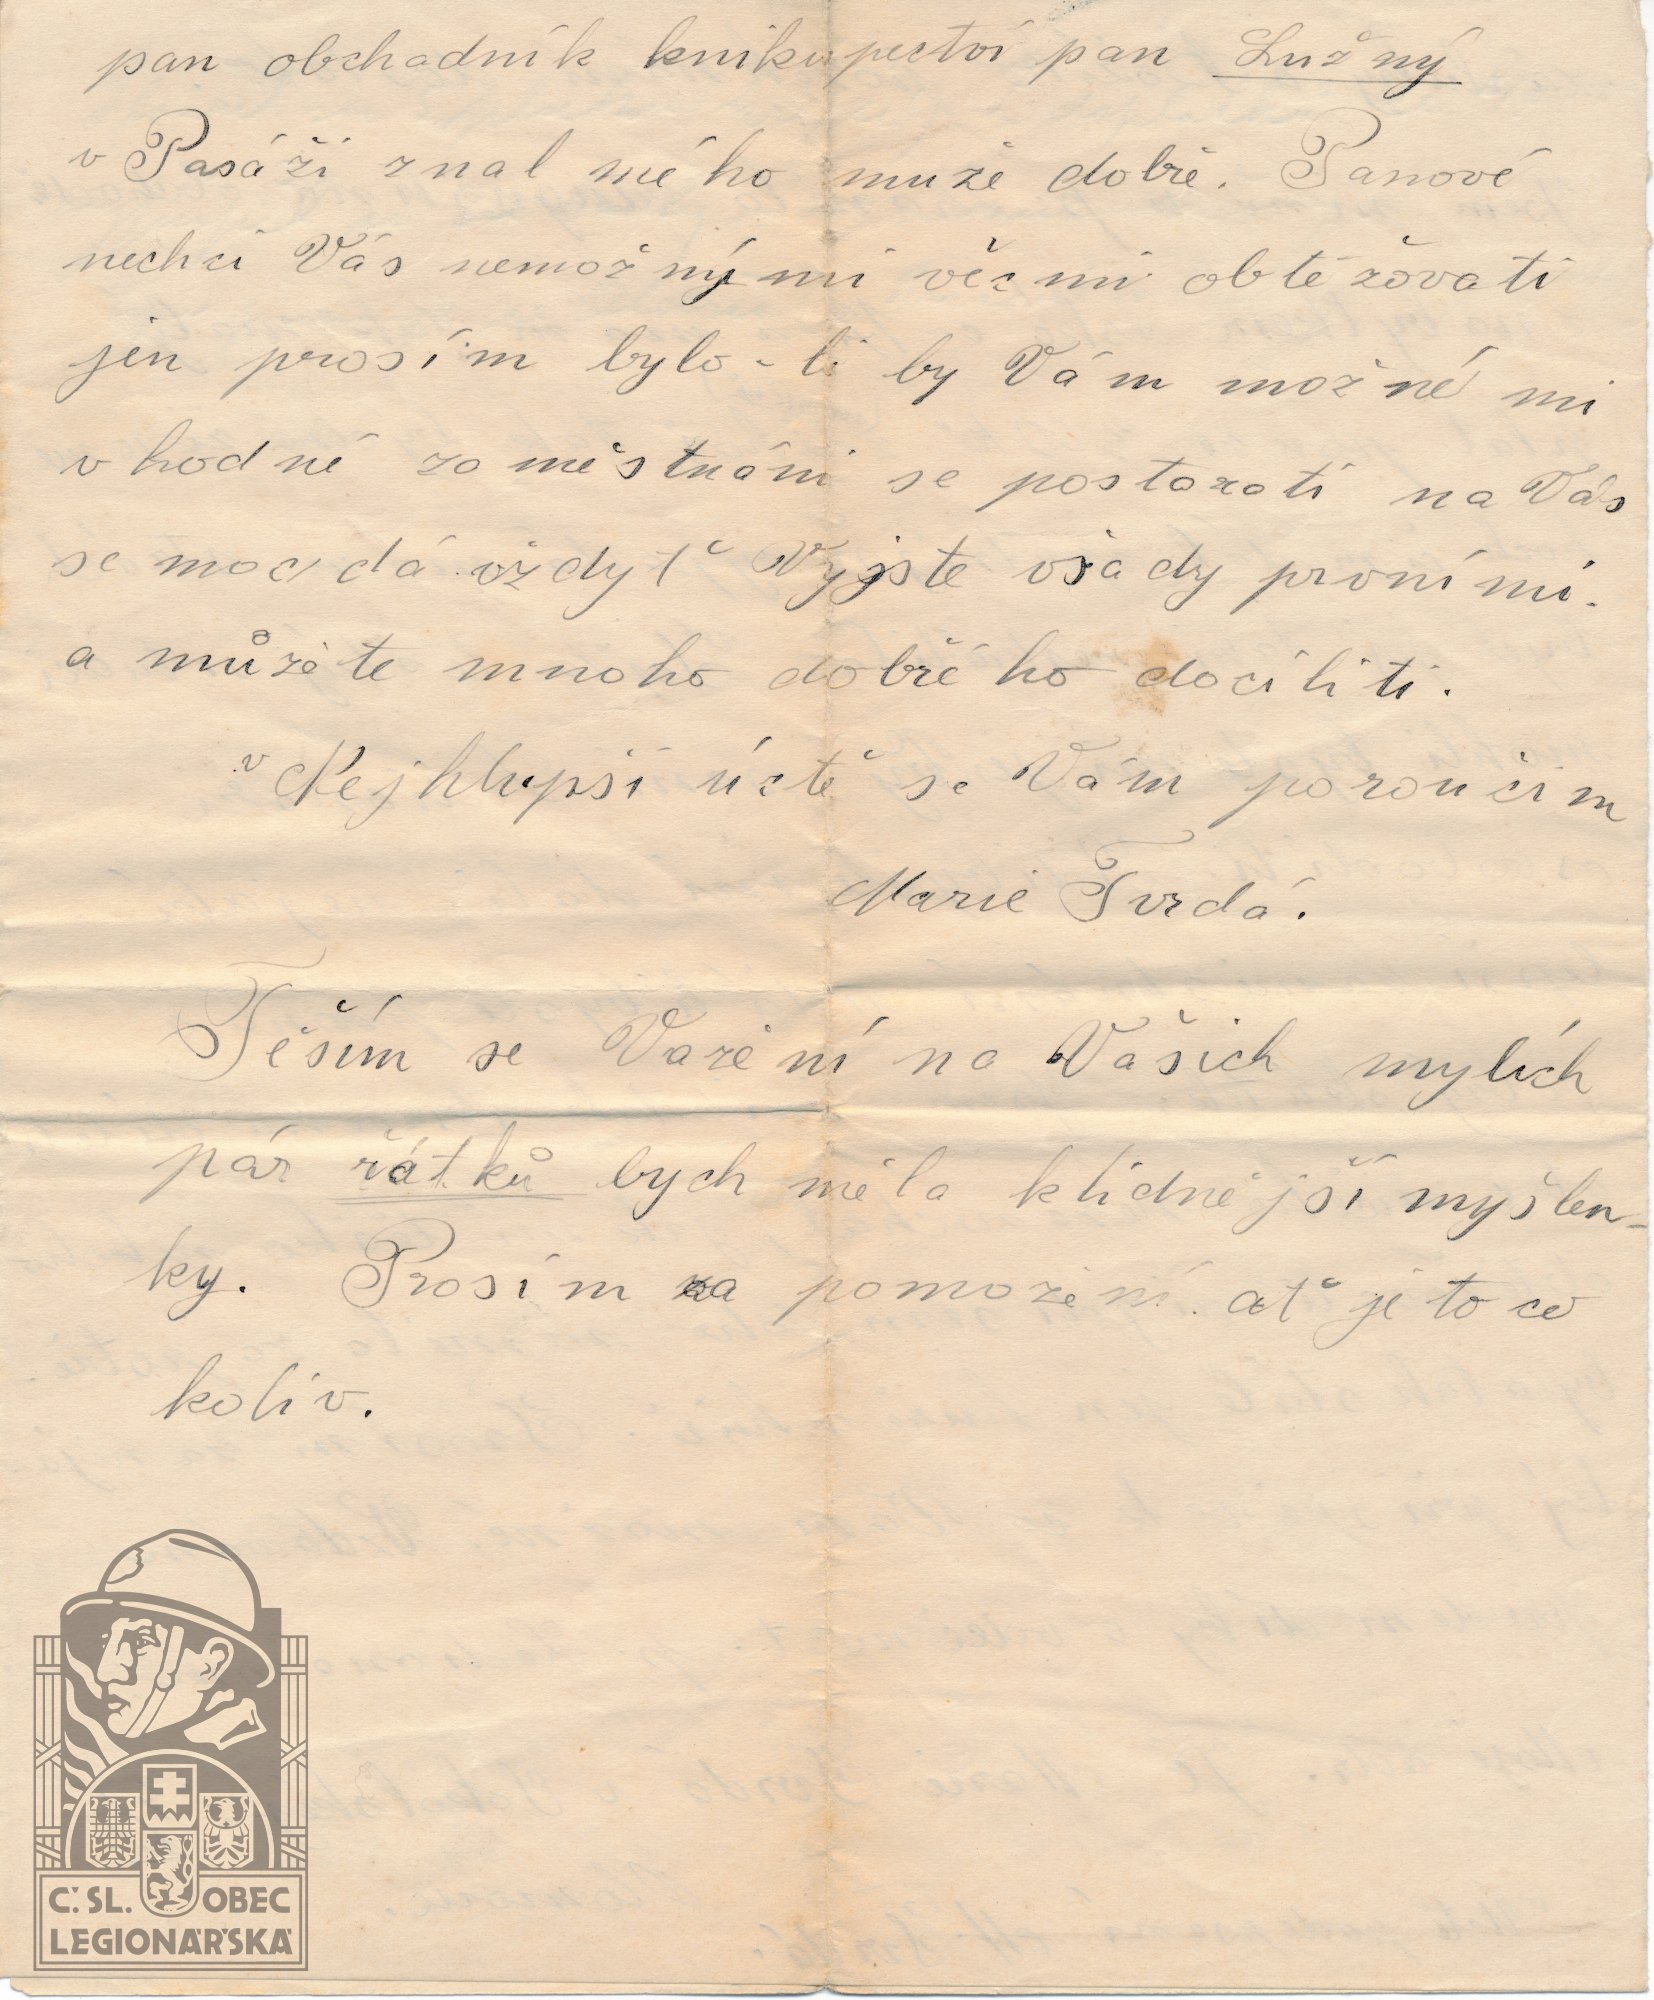 pan obchadník knikupectví pan Lužný
v Pasáži znal mého muže dobře. Panové
nechci Vás nemožnými věcmi obtěžovati
jen prosím bylo-li by Vám možné mi
vhodné zaměstnáni se postarati na Vás
se moc dá vždyť Vy jste všady prvními.
a můžete mnoho dobřého docíliti.
v Nejhlupší úctě se Vám poroučim
Marie Tvrdá.
Těším se Važeni na Vašich mylích
pár řátků bych měla klidnější myšlen-
ky. Prosím za pomožení ať je to co
koliv.
Č.SL. OBEC
LEGIONÁŘSKÁ